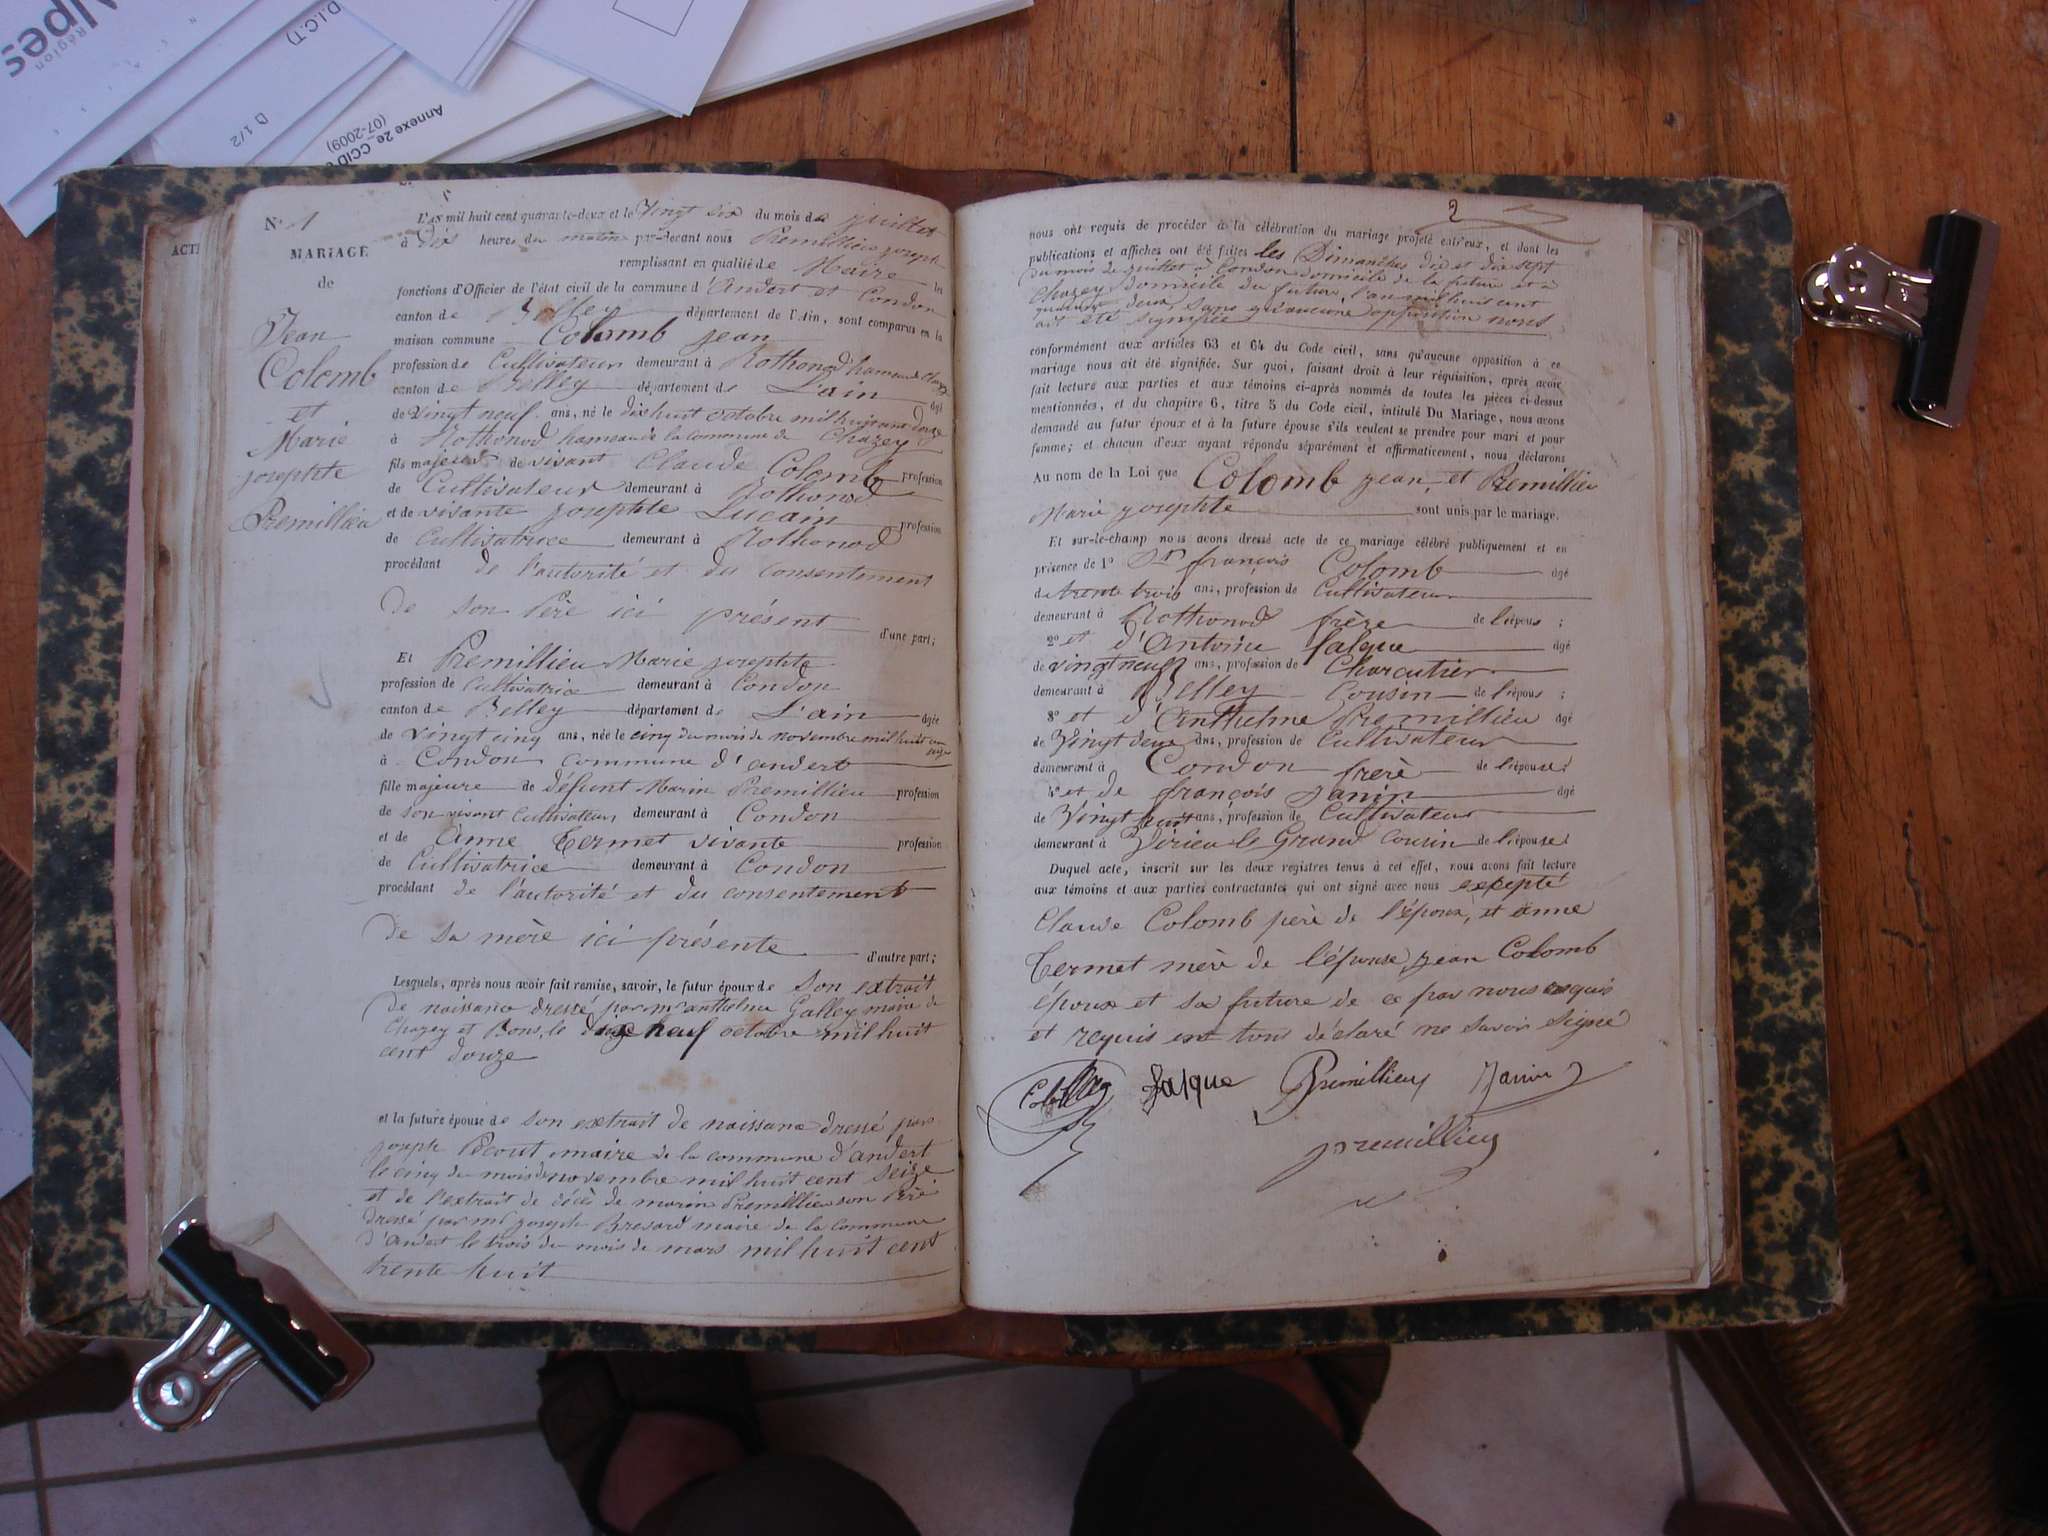 Alpes
Région
D.I.C.T)
D 1/2
Annexe 2e_CCID
(07-2009)
ACTE
N° 1
MARIAGE
de
Jean
Colomb
et
Marie
josephte
Premillieu
L'an mil huit cent quarante-deux et le vingt six du mois de juillet
à dix heures du matin par-devant nous Premillieu joseph
remplissant en qualité de Maire les
fonctions d'Officier de l'état civil de la commune d'andert et Condon
canton de Belley département de l'Ain, sont comparus en la
maison commune Colomb jean
profession de Cultivateur demeurant à Rothonod hameau de Chazey
canton de Belley département de L'ain âgé
de vingt neuf ans, né le dix huit octobre mil huit cent douze
à Rothonod hameau de la commune de Chazey
fils majeur de vivant Claude Colomb profession
de Cultivateur demeurant à Rothonod
et de vivante josephte Lucain profession
de Cultivatrice demeurant à Rothonod
procédant de l'autorité et du consentement
de son Père ici présent
d'une part;
Et Premillieu Marie josephte
profession de Cultivatrice demeurant à Condon
canton de Belley département de L'ain âgée
de vingt cinq ans, née le cinq du mois de novembre mil huit cent seize
à Condon commune d'andert
fille majeure de défunt Marin Premillieu profession
de son vivant Cultivateur demeurant à Condon
et de Anne Termet vivante profession
de Cultivatrice demeurant à Condon
procédant de l'autorité et du consentement
de sa mère ici présente
d'autre part;
Lesquels, après nous avoir fait remise, savoir, le futur époux de son extrait
de naissance dressé par mr anthelme Galley maire de
Chazey et Bons, le dix neuf octobre mil huit
cent douze
et la future épouse de son extrait de naissance dressé par
joseph Récout maire de la commune d'andert
le cinq du mois de novembre mil huit cent seize
et de l'extrait de décès de marin Premillieu son Père
dressé par mr joseph Bresard maire de la commune
d'andert le trois du mois de mars mil huit cent
trente huit
2
nous ont requis de procéder à la célébration du mariage projeté entr'eux, et dont les
publications et affiches ont été faites les Dimanches dix et dix sept
du mois de juillet à Condon domicile de la future et à
Chazey domicile du futur, l'an mil huit cent
quarante deux, sans qu'aucune opposition nous
ait été signifiée
conformément aux articles 63 et 64 du Code civil, sans qu'aucune opposition à ce
mariage nous ait été signifiée. Sur quoi, faisant droit à leur réquisition, après avoir
fait lecture aux parties et aux témoins ci-après nommés de toutes les pièces ci-dessus
mentionnées, et du chapitre 6, titre 5 du Code civil, intitulé Du Mariage, nous avons
demandé au futur époux et à la future épouse s'ils veulent se prendre pour mari et pour
femme; et chacun d'eux ayant répondu séparément et affirmativement, nous déclarons
Au nom de la Loi que Colomb jean, et Premillieu
Marie josephte sont unis par le mariage.
Et sur-le-champ nous avons dressé acte de ce mariage célébré publiquement et en
présence de 1° Sr françois Colomb âgé
de trente trois ans, profession de Cultivateur
demeurant à Rothonod frère de l'époux ;
2° et d'Antoine falque âgé
de vingt neuf ans, profession de Charcutier
demeurant à Belley Cousin de l'époux ;
3° et d'Anthelme Premillieu âgé
de Vingt deux ans, profession de Cultivateur
demeurant à Condon frère de l'épouse;
4° et de françois Janin âgé
de Vingt huit ans, profession de Cultivateur
demeurant à Virieu le Grand cousin de l'épouse
Duquel acte, inscrit sur les deux registres tenus à cet effet, nous avons fait lecture
aux témoins et aux parties contractantes qui ont signé avec nous excepté
Claude Colomb père de l'époux, et anne
Termet mère de l'épouse, jean Colomb
époux et sa future de ce par nous enquis
et requis ont tous déclaré ne savoir signé
falque Premillieu Janin
premillieu